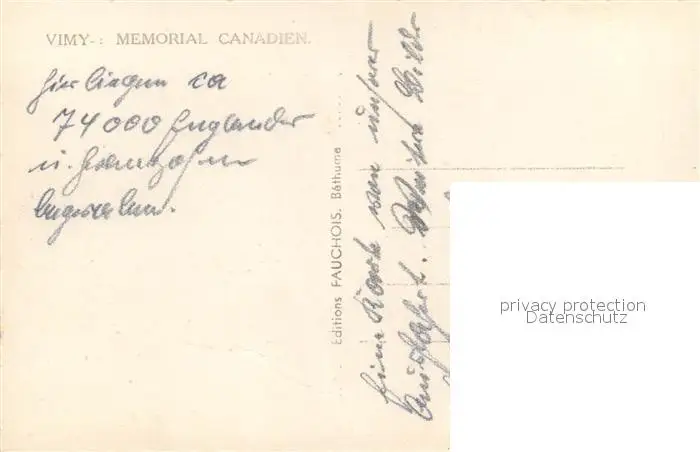 VIMY-: MEMORIAL CANADIEN.
hier liegen ca
74000 Engländer
u. Franzosen
begraben.
Editions FAUCHOIS. Béthune
Eine Karte von unserer
privacy protection
Datenschutz